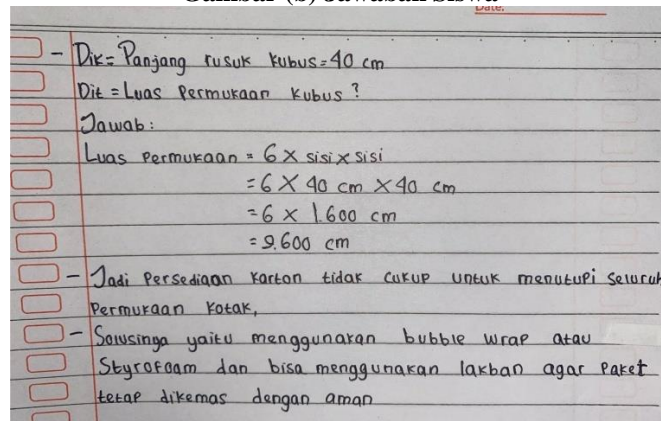 Gambar (b) Jawaban Siswa
Date.
- Dik = Panjang rusuk kubus = 40 cm
Dit = Luas Permukaan kubus ?
Jawab :
Luas Permukaan = 6 X sisi x sisi
= 6 X 40 cm X 40 cm
= 6 X 1.600 cm
= 9.600 cm
- Jadi Persediaan karton tidak cukup untuk menutupi seluruh
Permukaan kotak,
- Solusinya yaitu menggunakan bubble wrap atau
Styrofoam dan bisa menggunakan lakban agar Paket
tetap dikemas dengan aman